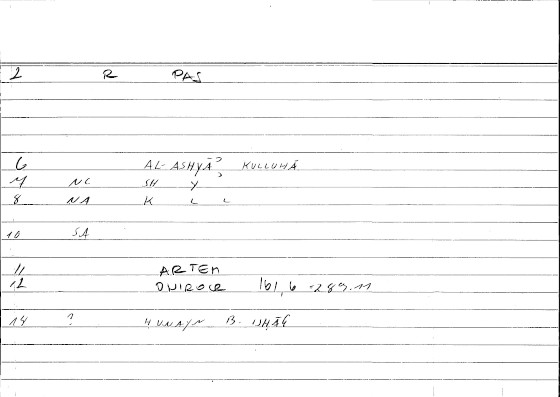 2 R PAS
6 AL-ASHYĀʾ KULLUHĀ
7 NC SH Y ʾ
8 NA K L L
10 SA
11 ARTEM
12 ONIROCR 161,6 -289.11
14 ? HUNAYN B. ISHĀQ